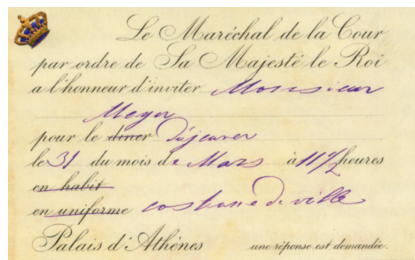 Le Maréchal de la Cour
par ordre de Sa Majesté le Roi
a l'honneur d'inviter Monsieur
Meyer
pour le dîner Déjeuner
le 31 du mois de Mars à 11 1/2 heures
en habit
en uniforme costume de ville
Palais d'Athènes une réponse est demandée.